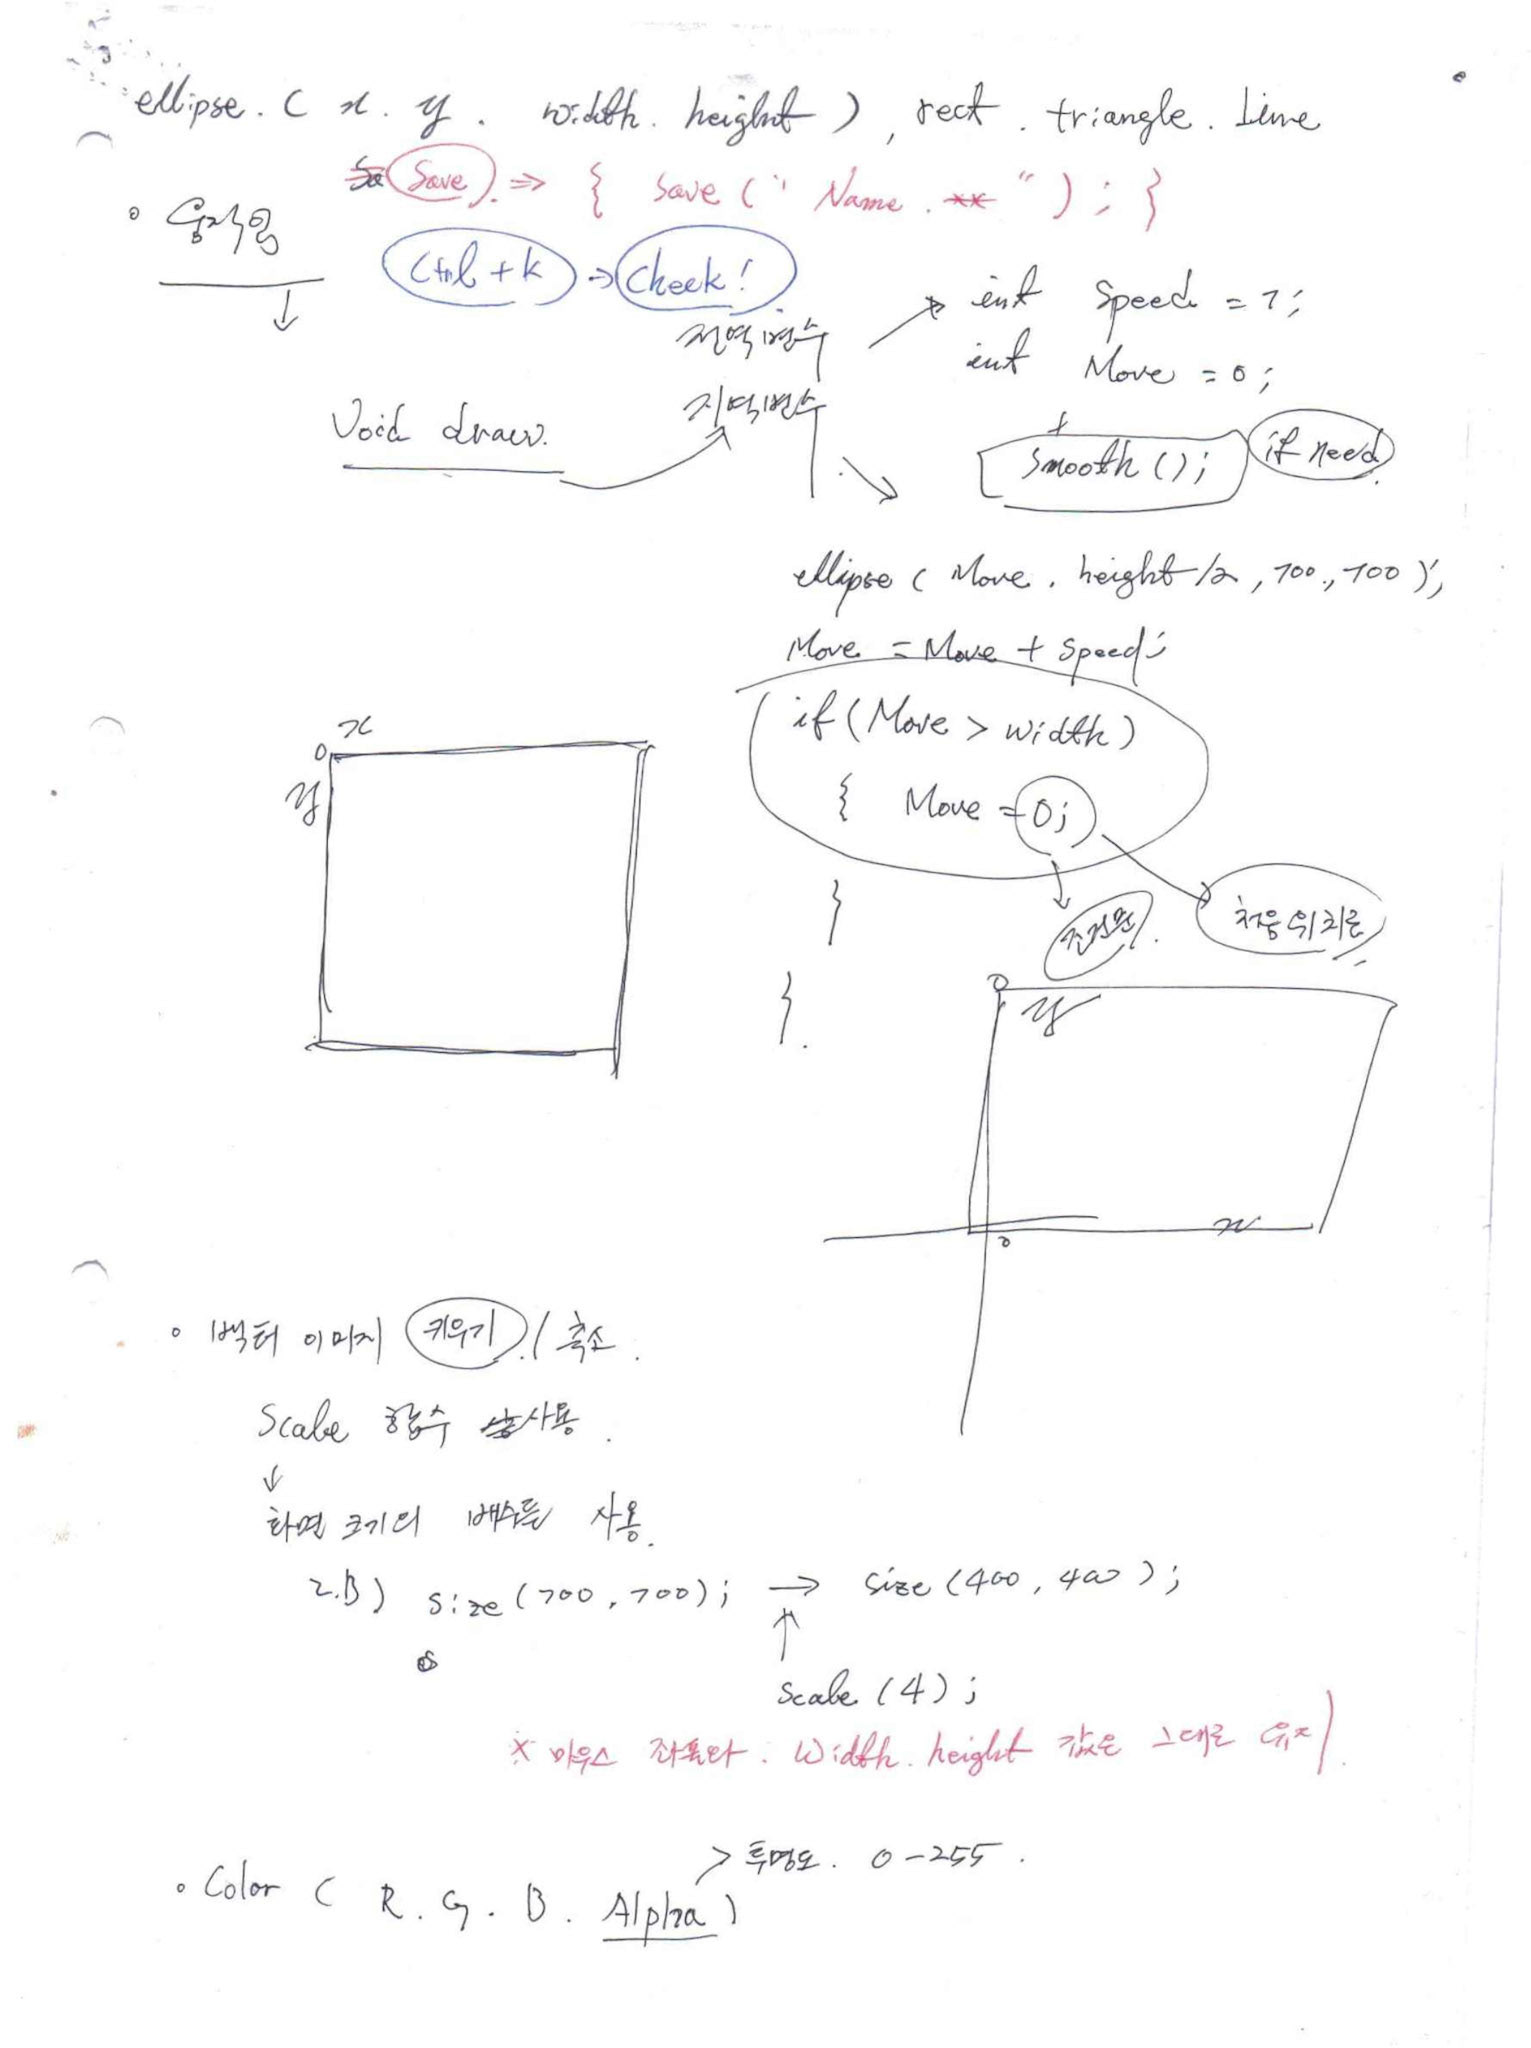 ellipse. ( x. y. width. height ), rect. triangle. Line
Save. ⇒ { Save (" Name. ** "); }
움직임
Ctrl + K → Check!
전역변수
int Speed = 7;
int Move = 0;
지역변수
Void draw.
+
Smooth (); if need.
ellipse ( Move. height/2, 700., 700 );
Move = Move + Speed;
if (Move > width)
{ Move = 0;
}
조건문. 처음위치로
}.
0 x
y
0
y
x
0
벡터 이미지 키우기. / 축소.
Scale 함수 사용.
↓
화면 크기의 배수를 사용.
Z.B) Size (700, 700); → Size (400, 400);
↑
Scale (4);
※ 마우스 좌표와. Width. height 값은 그대로 유지.
> 투명도. 0-255.
Color ( R. G. B. Alpha )